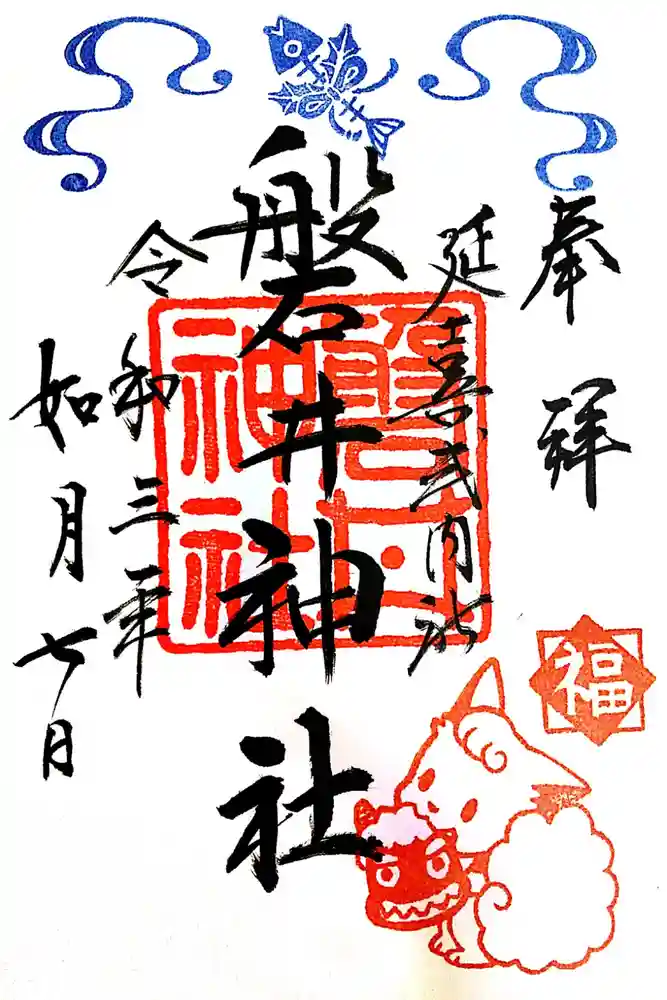 奉拝
延喜式内社
磐井神社
令和三年
如月七日
磐井
神社
福